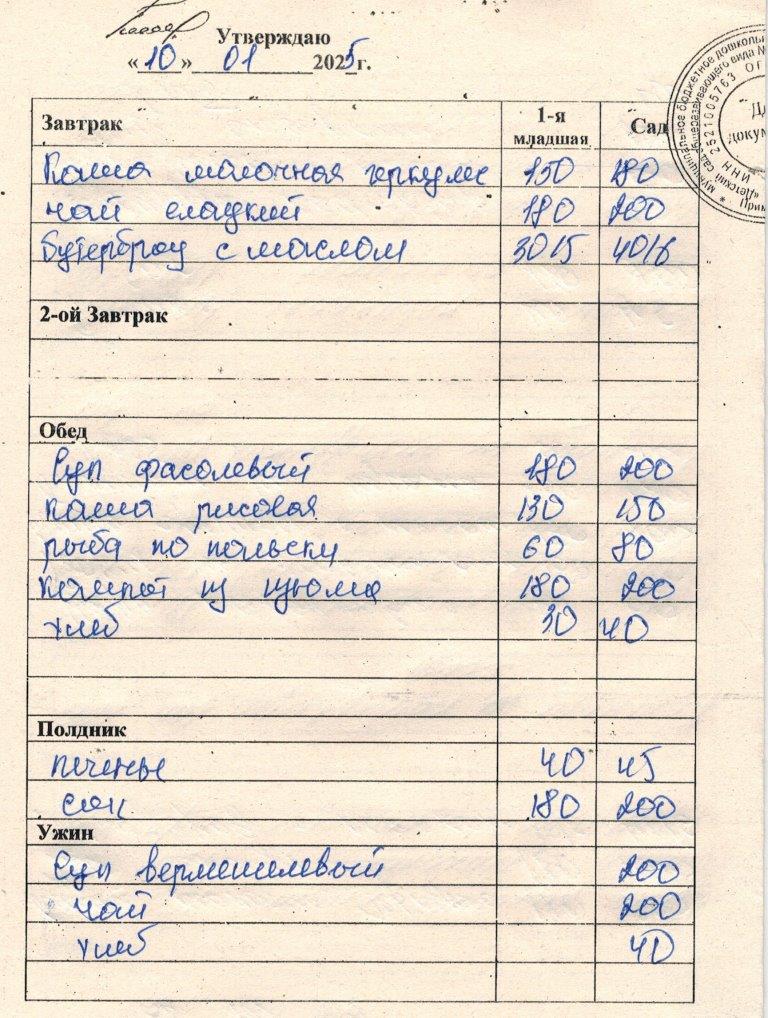 Утверждаю
«10» 01 2025г.
Завтрак 1-я младшая Сад
Каша молочная геркулес 150 180
чай сладкий 180 200
бутерброд с маслом 30/5 40/6
2-ой Завтрак
Обед
Суп фасолевый 180 200
каша рисовая 130 150
рыба по польски 60 80
компот из изюма 180 200
хлеб 30 40
Полдник
печенье 40 45
сок 180 200
Ужин
Суп вермешелевый 200
чай 200
хлеб 40
муниципальное бюджетное дошкольн
общеразвивающего вида №
2521005763 ОГ
ИНН
«Детский сад
Прим
докум